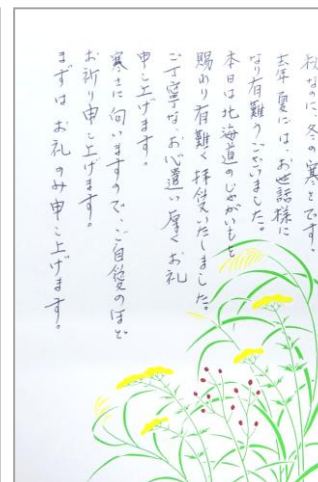 秋なのに、冬の寒さです。
去年夏には、お世話様に
なり有難うございました。
本日は北海道のじゃがいもを
賜わり有難く拝受いたしました。
ご丁寧な、お心遣い厚くお礼
申し上げます。
寒さに向いますので、ご自愛のほど
お祈り申し上げます。
まずは お礼のみ申し上げます。